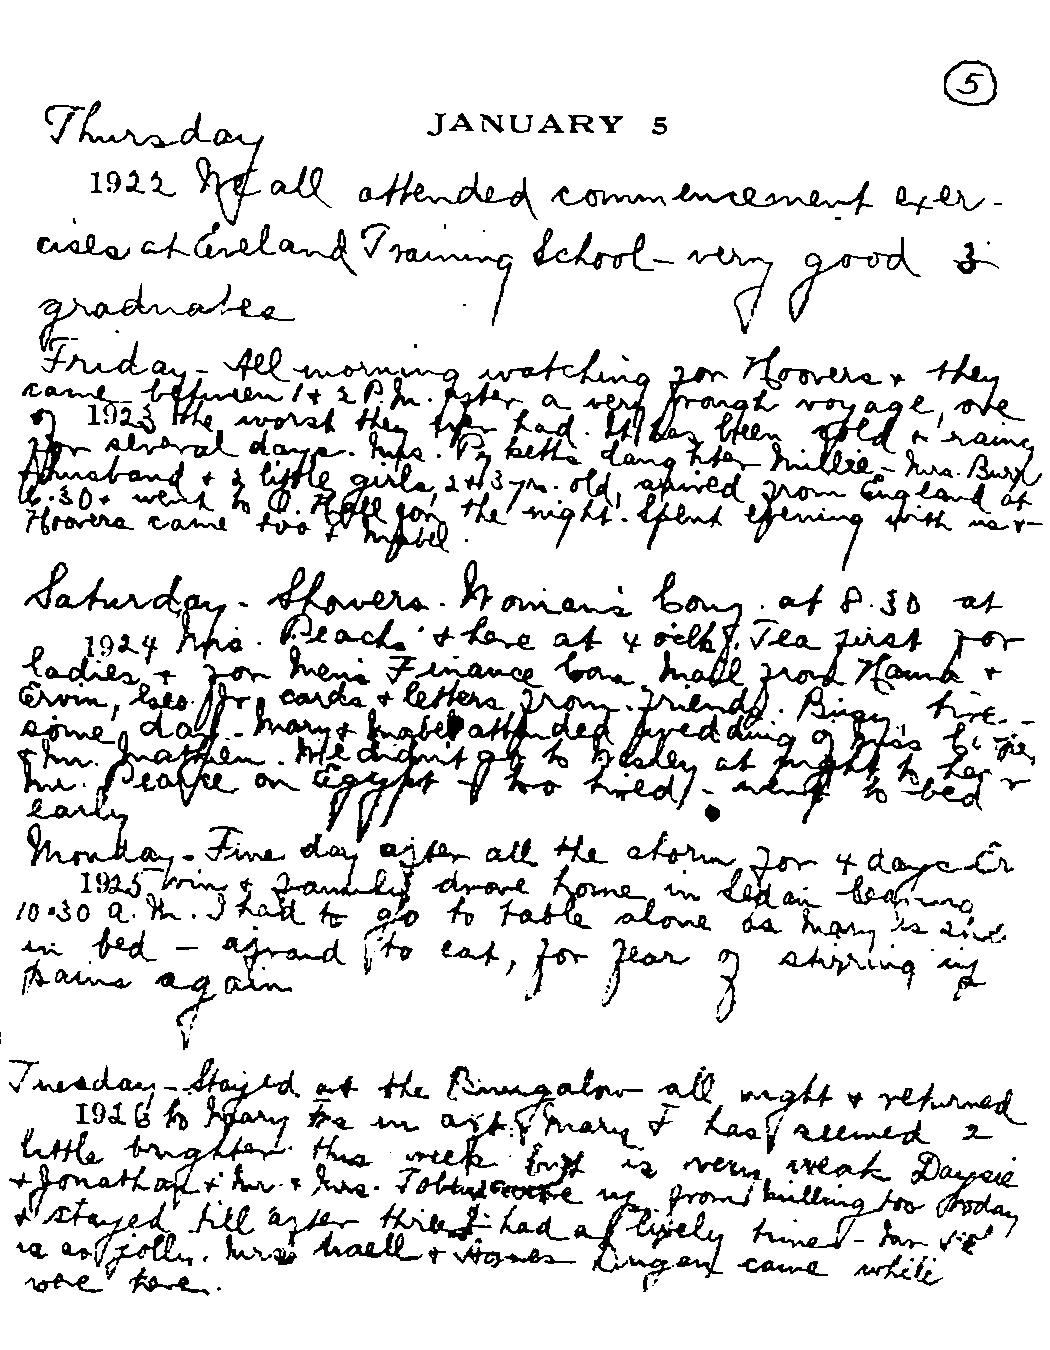 5
JANUARY 5
Thursday
1922 We all attended commencement exer-
cises at Eveland Training School - very good 3
graduates
Friday - All morning watching for Hoovers & they
came between 1 & 2 P.M. after a very rough voyage, one
of 1923 the worst they ever had. It has been cold & rainy
for several days. Mrs. Pyketts daughter Millie - Mrs. Burr
husband & 2 little girls, 2 & 3 yrs. old, arrived from England at
6.30 & went to O. Hall for the night. Spent evening with us &
Hoovers came too & Mabel.
Saturday - Showers. Woman's Cong. at 8.30 at
1924 Mrs. Peach's & here at 4 o'clk. Tea first for
ladies & for Men's Finance Com. Mail from Hanna &
Ervin, cards & letters from friends. Busy, tire-
some day - Mary & Mabel attended wedding of Miss
& Mr. Mathen. We didn't go to Wesley at night to hear
Mr. Pearce on Egypt - too tired - went to bed
early
Monday - Fine day after all the storm for 4 days Er
1925 win & family drove home in Sedan leaving
10.30 a.m. I had to go to table alone as Mary is sick
in bed - afraid to eat, for fear of stirring up
pains again
Tuesday - Stayed at the Bungalow all night & returned
1926 to Mary F's in aft. Mary F has seemed a
little brighter this week but is very weak Daysie
& Jonathan & Mr. & Mrs. were up from milling too today
& stayed till after three I had a lively time - Mr
is as jolly. Mrs & Agnes Dugan came while
were here.